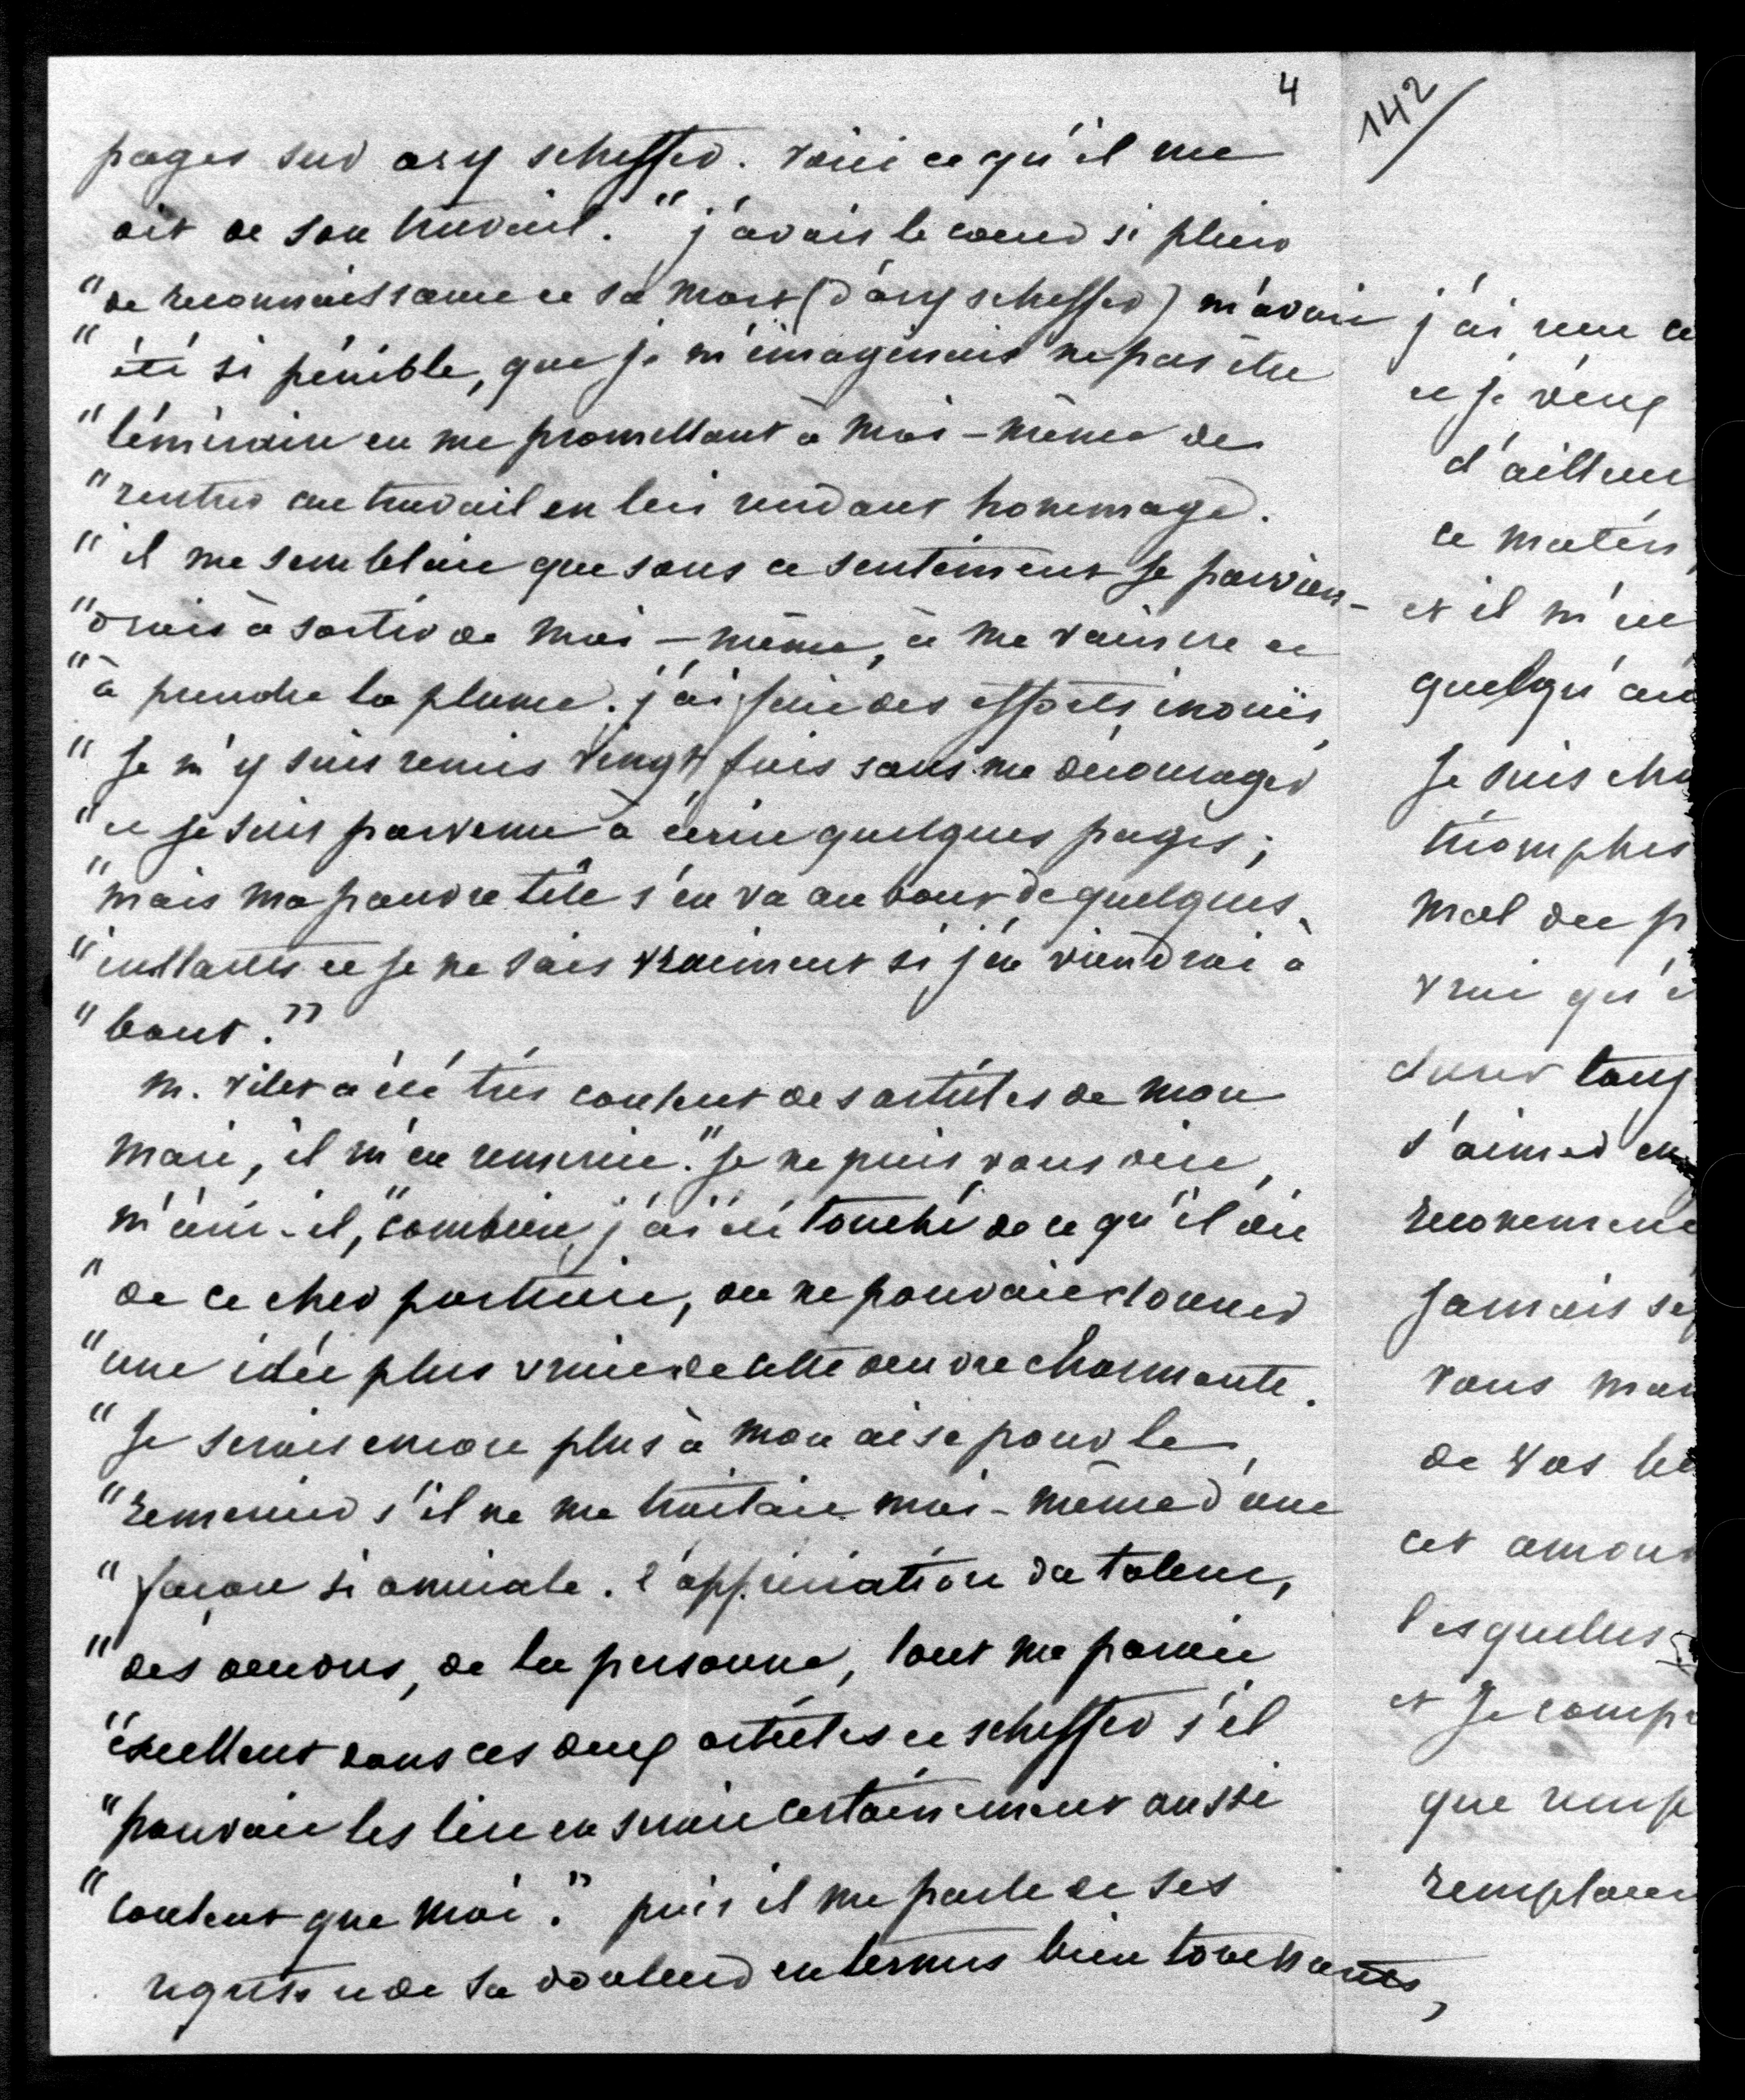 4
pages sur ary scheffer. voici ce qu'il me
dit de son travail. "j'avais le coeur si plein
"de reconnaissance et sa mort (d'ary scheffer) m'avait
"été si pénible, que je m'imaginais ne pas être
"téméraire en me promettant à moi-même de
"rentrer au travail en lui rendant hommage.
"il me semblait que sous ce sentiment je parvien-
"drais à sortir de moi-même, à me vaincre et
"à prendre la plume. j'ai fait des efforts inouïs,
"je m'y suis remis vingt fois sans me décourager
"et je suis parvenu à écrire quelques pages;
"mais ma pauvre tête s'en va au bout de quelques
"instants et je ne sais vraiment si j'en viendrai à
"bout."
m. vitet a été très content des articles de mon
mari, il m'en remercie. "je ne puis vous dire,
m'écrit-il, "combien j'ai été touché de ce qu'il dit
"de ce cher portrait, on ne pouvait donner
"une idée plus vraie de cette oeuvre charmante.
"je serais encore plus à mon aise pour le
"remercier s'il ne me traitait moi-même d'une
"façon si amicale. l'appréciation du talent,
"des oeuvres, de la personne, tout me parait
"excellent dans ces deux articles et scheffer s'il
"pouvait les lire en serait certainement aussi
"content que moi." puis il me parle de ses
regrets et de sa douleur en termes bien touchants,
142
j'ai
et je veux
d'ailleur
ce matin
et il m'en
quelqu'un
je suis cha
triomphes
mal du p
vrai qu'i
dans tous
s'aimer en
jamais se
vous man
de vos le
cet amour
lesquelles
et je comp
que
remplacer